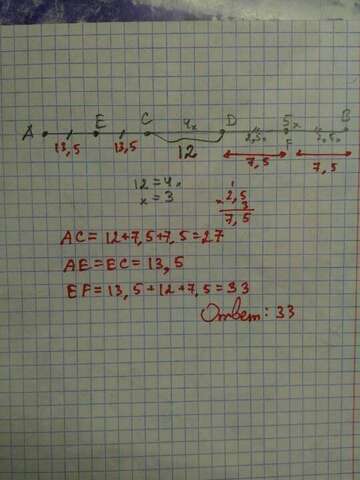 A E C 4x D 5x B
13,5 13,5 12 2,5x F 2,5x
7,5 7,5
12 = 4x
x = 3
2,5
× 3
7,5
AC = 12+7,5+7,5=27
AE=EC= 13,5
EF= 13,5+12+7,5=33
Ответ: 33